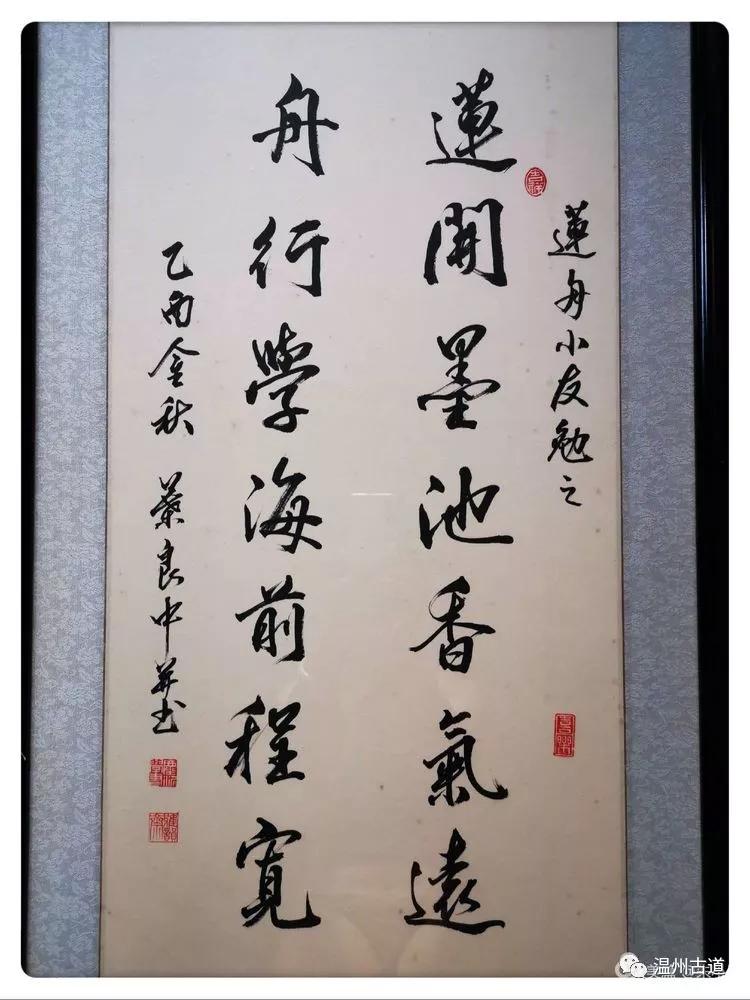 蓮舟小友勉之
蓮開墨池香氣遠
舟行學海前程寬
乙酉金秋 蔡良中并书
温州古道